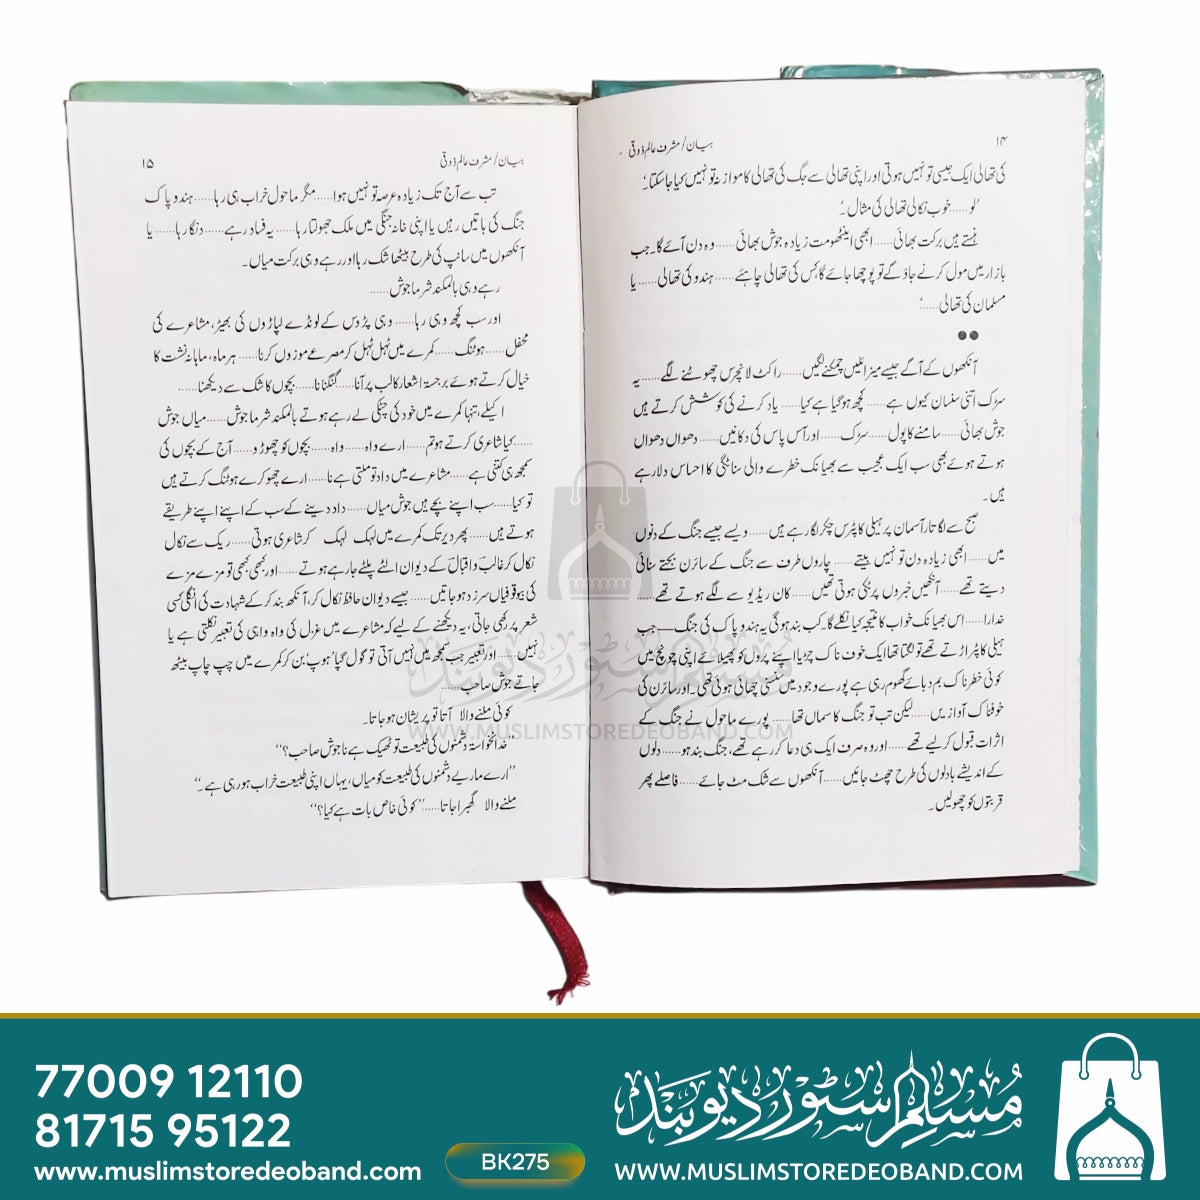 ۱۴
بیان/مشرف عالم ذوقی
کی تھالی ایک جیسی تو نہیں ہوتی اور اپنی تھالی سے جگ کی تھالی کا موازنہ تو نہیں کیا جاسکتا۔'
'لو......خوب نکالی تھالی کی مثال۔'
ہنستے ہیں برکت بھائی......ابھی اینٹھومت زیادہ جوش بھائی......وہ دن آئے گا۔ جب
بازار میں مول کرنے جاؤ گے تو پوچھا جائے گا، کس کی تھالی چاہئے......ہندو کی تھالی......یا
مسلمان کی تھالی......'
●●
آنکھوں کے آگے جیسے میزائلیں چمکنے لگیں......راکٹ لانچرس چھوٹنے لگے......یہ
سڑک اتنی سنسان کیوں ہے......کچھ ہو گیا ہے کیا......یاد کرنے کی کوشش کرتے ہیں
جوش بھائی......سامنے کا پول......سڑک......اور آس پاس کی دکانیں......دھواں دھواں
ہوتے ہوئے بھی سب ایک عجیب سے بھیانک خطرے والی سناٹگی کا احساس دلا رہے
ہیں۔
صبح سے لگاتار آسمان پر ہیلی کاپٹرس چکر لگا رہے ہیں......ویسے جیسے جنگ کے دنوں
میں......ابھی زیادہ دن تو نہیں بیتے......چاروں طرف سے جنگ کے سائرن بجتے سنائی
دیتے تھے......آنکھیں خبروں پر ٹکی ہوتی تھیں......کان ریڈیو سے لگے ہوتے تھے......
خدارا......اس بھیانک خواب کا نتیجہ کیا نکلے گا۔ کب بند ہوگی یہ ہندو پاک کی جنگ—جب
ہیلی کاپٹر اڑتے تھے تو لگتا تھا ایک خوف ناک چڑیا اپنے پروں کو پھیلائے اپنی چونچ میں
کوئی خطرناک بم دبائے گھوم رہی ہے پورے وجود میں سنسنی چھائی ہوئی تھی۔ اور سائرن کی
خوفناک آوازیں......لیکن تب تو جنگ کا سماں تھا......پورے ماحول نے جنگ کے
اثرات قبول کر لیے تھے......اور وہ صرف ایک ہی دعا کر رہے تھے، جنگ بند ہو......دلوں
کے اندیشے بادلوں کی طرح چھٹ جائیں......آنکھوں سے شک مٹ جائے......فاصلے پھر
قربتوں کو چھولیں۔
بیان/مشرف عالم ذوقی
۱۵
تب سے آج تک زیادہ عرصہ تو نہیں ہوا......مگر ماحول خراب ہی رہا......ہندو پاک
جنگ کی باتیں رہیں یا اپنی خانہ جنگی میں ملک جھولتا رہا......یہ فساد رہے......دنگا رہا......یا
آنکھوں میں سانپ کی طرح بیٹھا شک رہا اور رہے وہی برکت میاں۔
رہے وہی بالمکند شرما جوش......
اور سب کچھ وہی رہا......وہی پڑوس کے لونڈے لپاڑوں کی بھیڑ، مشاعرے کی
محفل......ہوٹنگ......کمرے میں ٹہل ٹہل کر مصرعے موزوں کرنا......ہر ماہ، ماہانہ نشت کا
خیال کرتے ہوئے برجستہ اشعار کا لب پر آنا......گنگنانا......بچوں کا شک سے دیکھنا......
اکیلے، تنہا کمرے میں خود کی چٹکی لے رہے ہوتے بالمکند شرما جوش......میاں جوش
......کیا شاعری کرتے ہو تم......ارے واہ......واہ......بچوں کو چھوڑو......آج کے بچوں کی
سمجھ ہی کتنی ہے......مشاعرے میں داد تو ملتی ہے نا......ارے چھوکرے ہوٹنگ کرتے ہیں
تو کیا......سب اپنے بچے ہیں جوش میاں......داد دینے کے سب کے اپنے اپنے طریقے
ہوتے ہیں......پھر دیر تک کمرے میں لہک لہک کر شاعری ہوتی......ریک سے نکال
نکال کر غالب و اقبال کے دیوان الٹے پلٹے جا رہے ہوتے......اور کبھی کبھی تو مزے مزے
کی بیوقوفیاں سرزد ہو جاتیں......جیسے دیوان حافظ نکال کر، آنکھ بند کر کے شہادت کی انگلی کسی
شعر پر رکھی جاتی، یہ دیکھنے کے لیے کہ مشاعرے میں غزل کی واہ واہی کی تعبیر نکلتی ہے یا
نہیں......اور تعبیر جب سمجھ میں نہیں آتی تو گول گپا 'ہوپ' بن کر کمرے میں چپ چاپ بیٹھ
جاتے جوش صاحب......
کوئی ملنے والا آتا تو پریشان ہو جاتا۔
"خدانخواستہ دشمنوں کی طبیعت تو ٹھیک ہے نا جوش صاحب؟"
"ارے ماریے دشمنوں کی طبیعت کو میاں، یہاں اپنی طبیعت خراب ہو رہی ہے۔"
ملنے والا گھبرا جاتا......"کوئی خاص بات ہے کیا؟"
مسلم سٹور دیوبند
WWW.MUSLIMSTOREDEOBAND.COM
77009 12110
81715 95122
www.muslimstoredeoband.com
BK275
مسلم سٹور دیوبند
WWW.MUSLIMSTOREDEOBAND.COM